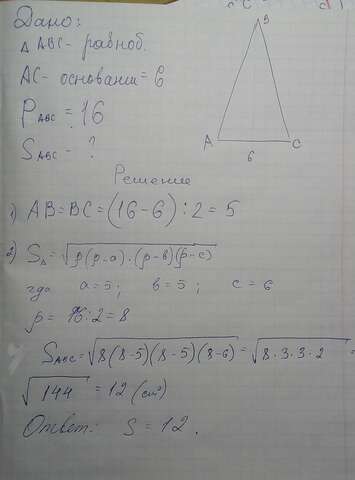 Дано:
Δ ABC - равноб.
AC - основании = 6
P ABC = 16
S ABC - ?
B
A
6
C
Решение
1) AB = BC = (16 - 6) : 2 = 5
2) S Δ = √p(p-a)·(p-в)(p-c)
где a = 5; b = 5; c = 6
p = 16 : 2 = 8
S ABC = √8(8-5)(8-5)(8-6) = √8·3·3·2 =
√144 = 12 (см²)
Ответ: S = 12.